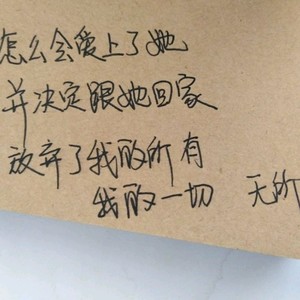 怎么会爱上了她
并决定跟她回家
放弃了我的所有
我的一切 无所